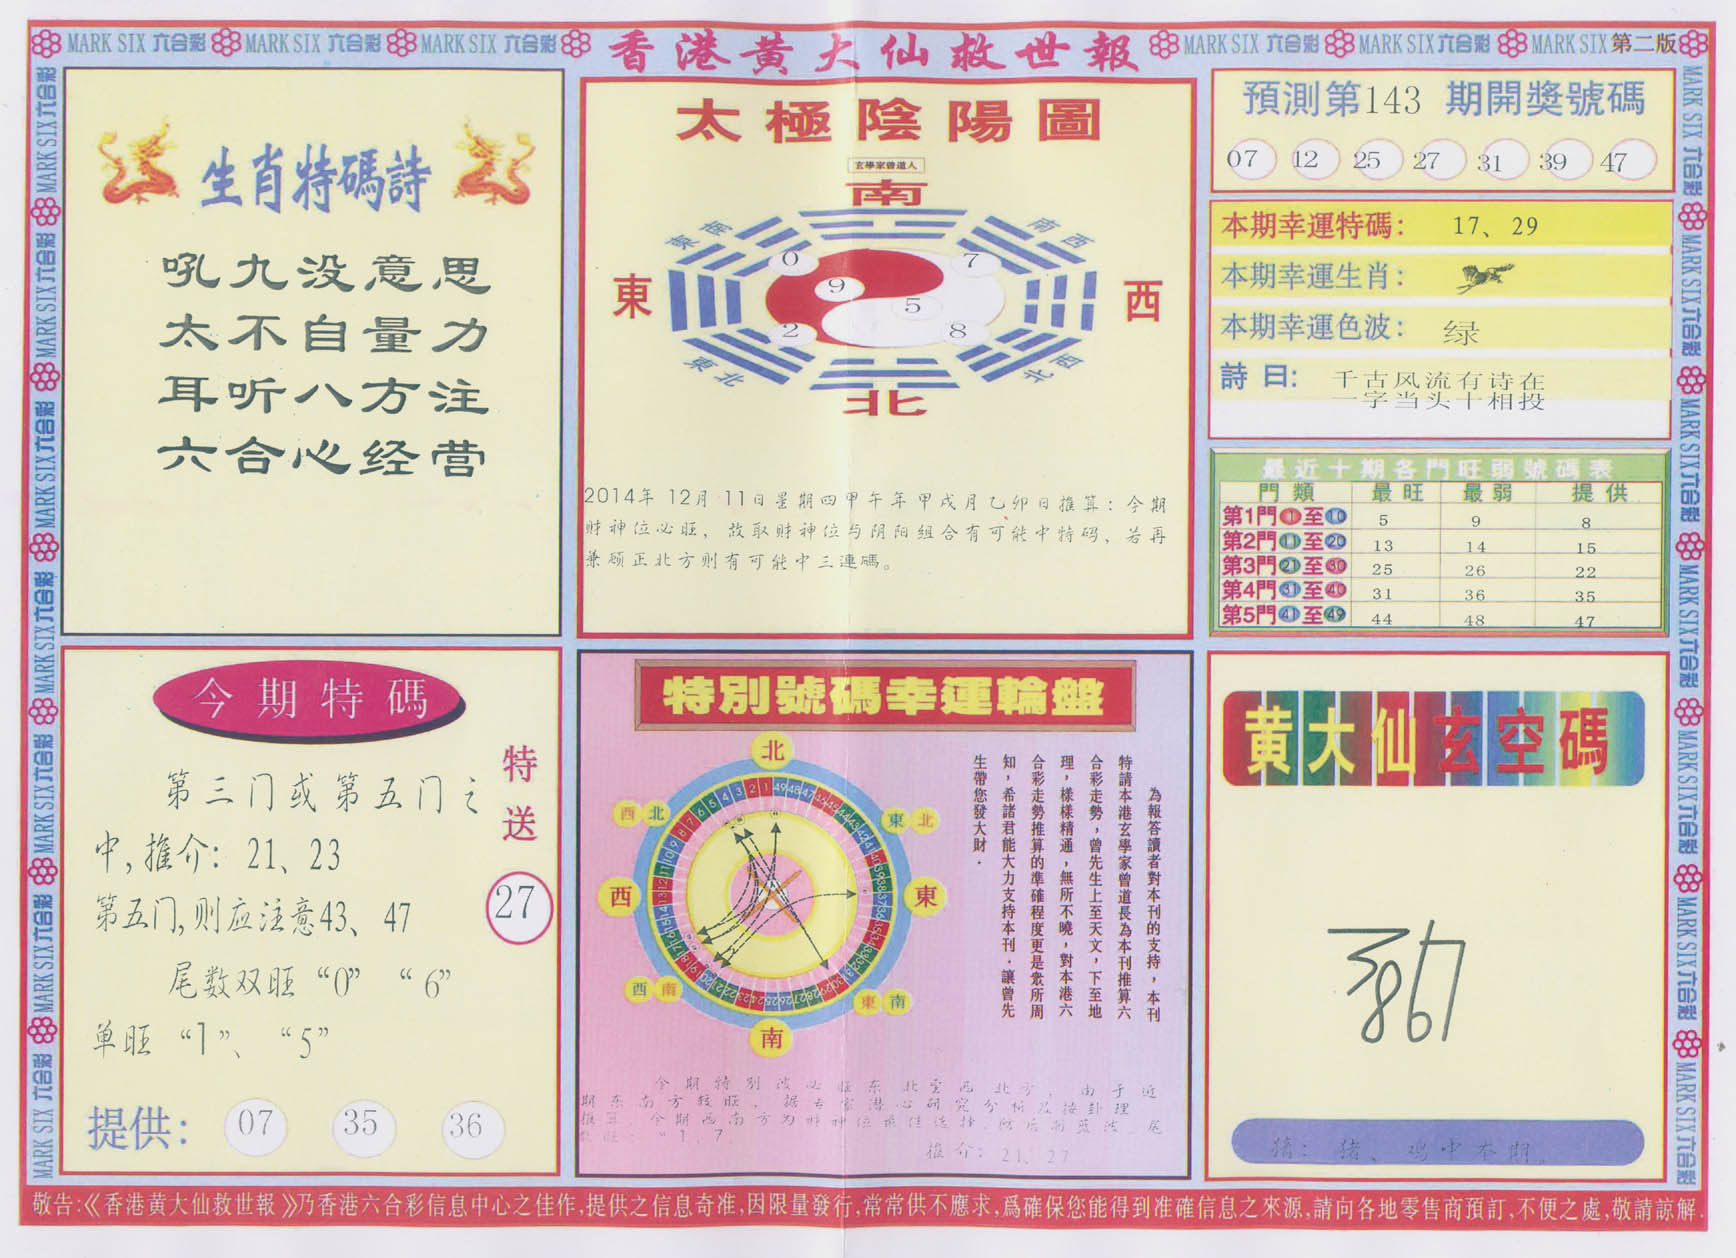 MARK SIX 六合彩 MARK SIX 六合彩 MARK SIX 六合彩
香港黄大仙救世報
MARK SIX 六合彩 MARK SIX 六合彩 MARK SIX 第二版
生肖特碼詩
吼九没意思
太不自量力
耳听八方注
六合心经营
太極陰陽圖
玄學家曾道人
南
東南
南西
東
西
0
7
9
5
2
8
東北
北西
北
2014年 12月 11日星期四甲午年甲戌月乙卯日推算：今期
财神位必旺，故取财神位与阴阳组合有可能中特码、若再
兼顾正北方则有可能中三連碼。
預測第143 期開獎號碼
07 12 25 27 31 39 47
本期幸運特碼： 17、29
本期幸運生肖：
本期幸運色波： 绿
詩曰： 千古风流有诗在
一字当头十相投
最近十期各門旺弱號碼表
門類 最旺 最弱 提供
第1門 1 至 10 5 9 8
第2門 11 至 20 13 14 15
第3門 21 至 30 25 26 22
第4門 31 至 40 31 36 35
第5門 41 至 49 44 48 47
今期特碼
第三门或第五门之
中,推介：21、23
第五门,则应注意43、47
尾数双旺“0” “6”
单旺“1”、“5”
特送
27
提供： 07 35 36
特別號碼幸運輪盤
北
西北
東北
西
東
西南
東南
南
為報答讀者對本刊的支持，本刊
特請本港玄學家曾道長為本刊推算六
合彩走勢，曾先生上至天文，下至地
理，樣樣精通，無所不曉，對本港六
合彩走勢推算的準確程度更是眾所周
知，希諸君能大力支持本刊．讓曾先
生帶您發大財．
今期特别波必旺东北至西北方，由于近
期东南方较旺，据玄家潜心研究分析及按卦理
推算，今期西南方为财神位最佳选择
推介：21、27
黄大仙玄空碼
猜：猪、鸡中本期。
敬告:《香港黄大仙救世報》乃香港六合彩信息中心之佳作,提供之信息奇准,因限量發行,常常供不應求,爲確保您能得到准確信息之來源,請向各地零售商預訂,不便之處,敬請諒解.